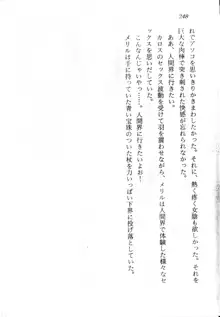 248
れでアソコを思いきりかきまわしたかった。それに、熱く疼く女陰を
巨大な肉棒で突き刺された快感が忘れられなかった。
ああ、人間界に行きたい。
カロスのセックス波動を受けて羽を震わせながら、メリルは人間界で体験した様々なセ
ックスを思いだしていた。
こんなんじゃいやっ⋯⋯。人間界に行きたいよお！
メリルは手に持っていた青い宝珠のついた杖を力いっぱい下界に投げ落としていた。